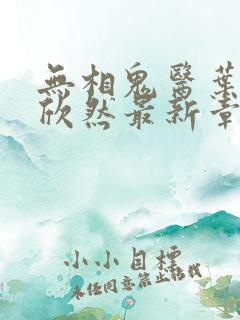 無相鬼醫葉
欣然最新章
小小目標
未任同意禁止轉載